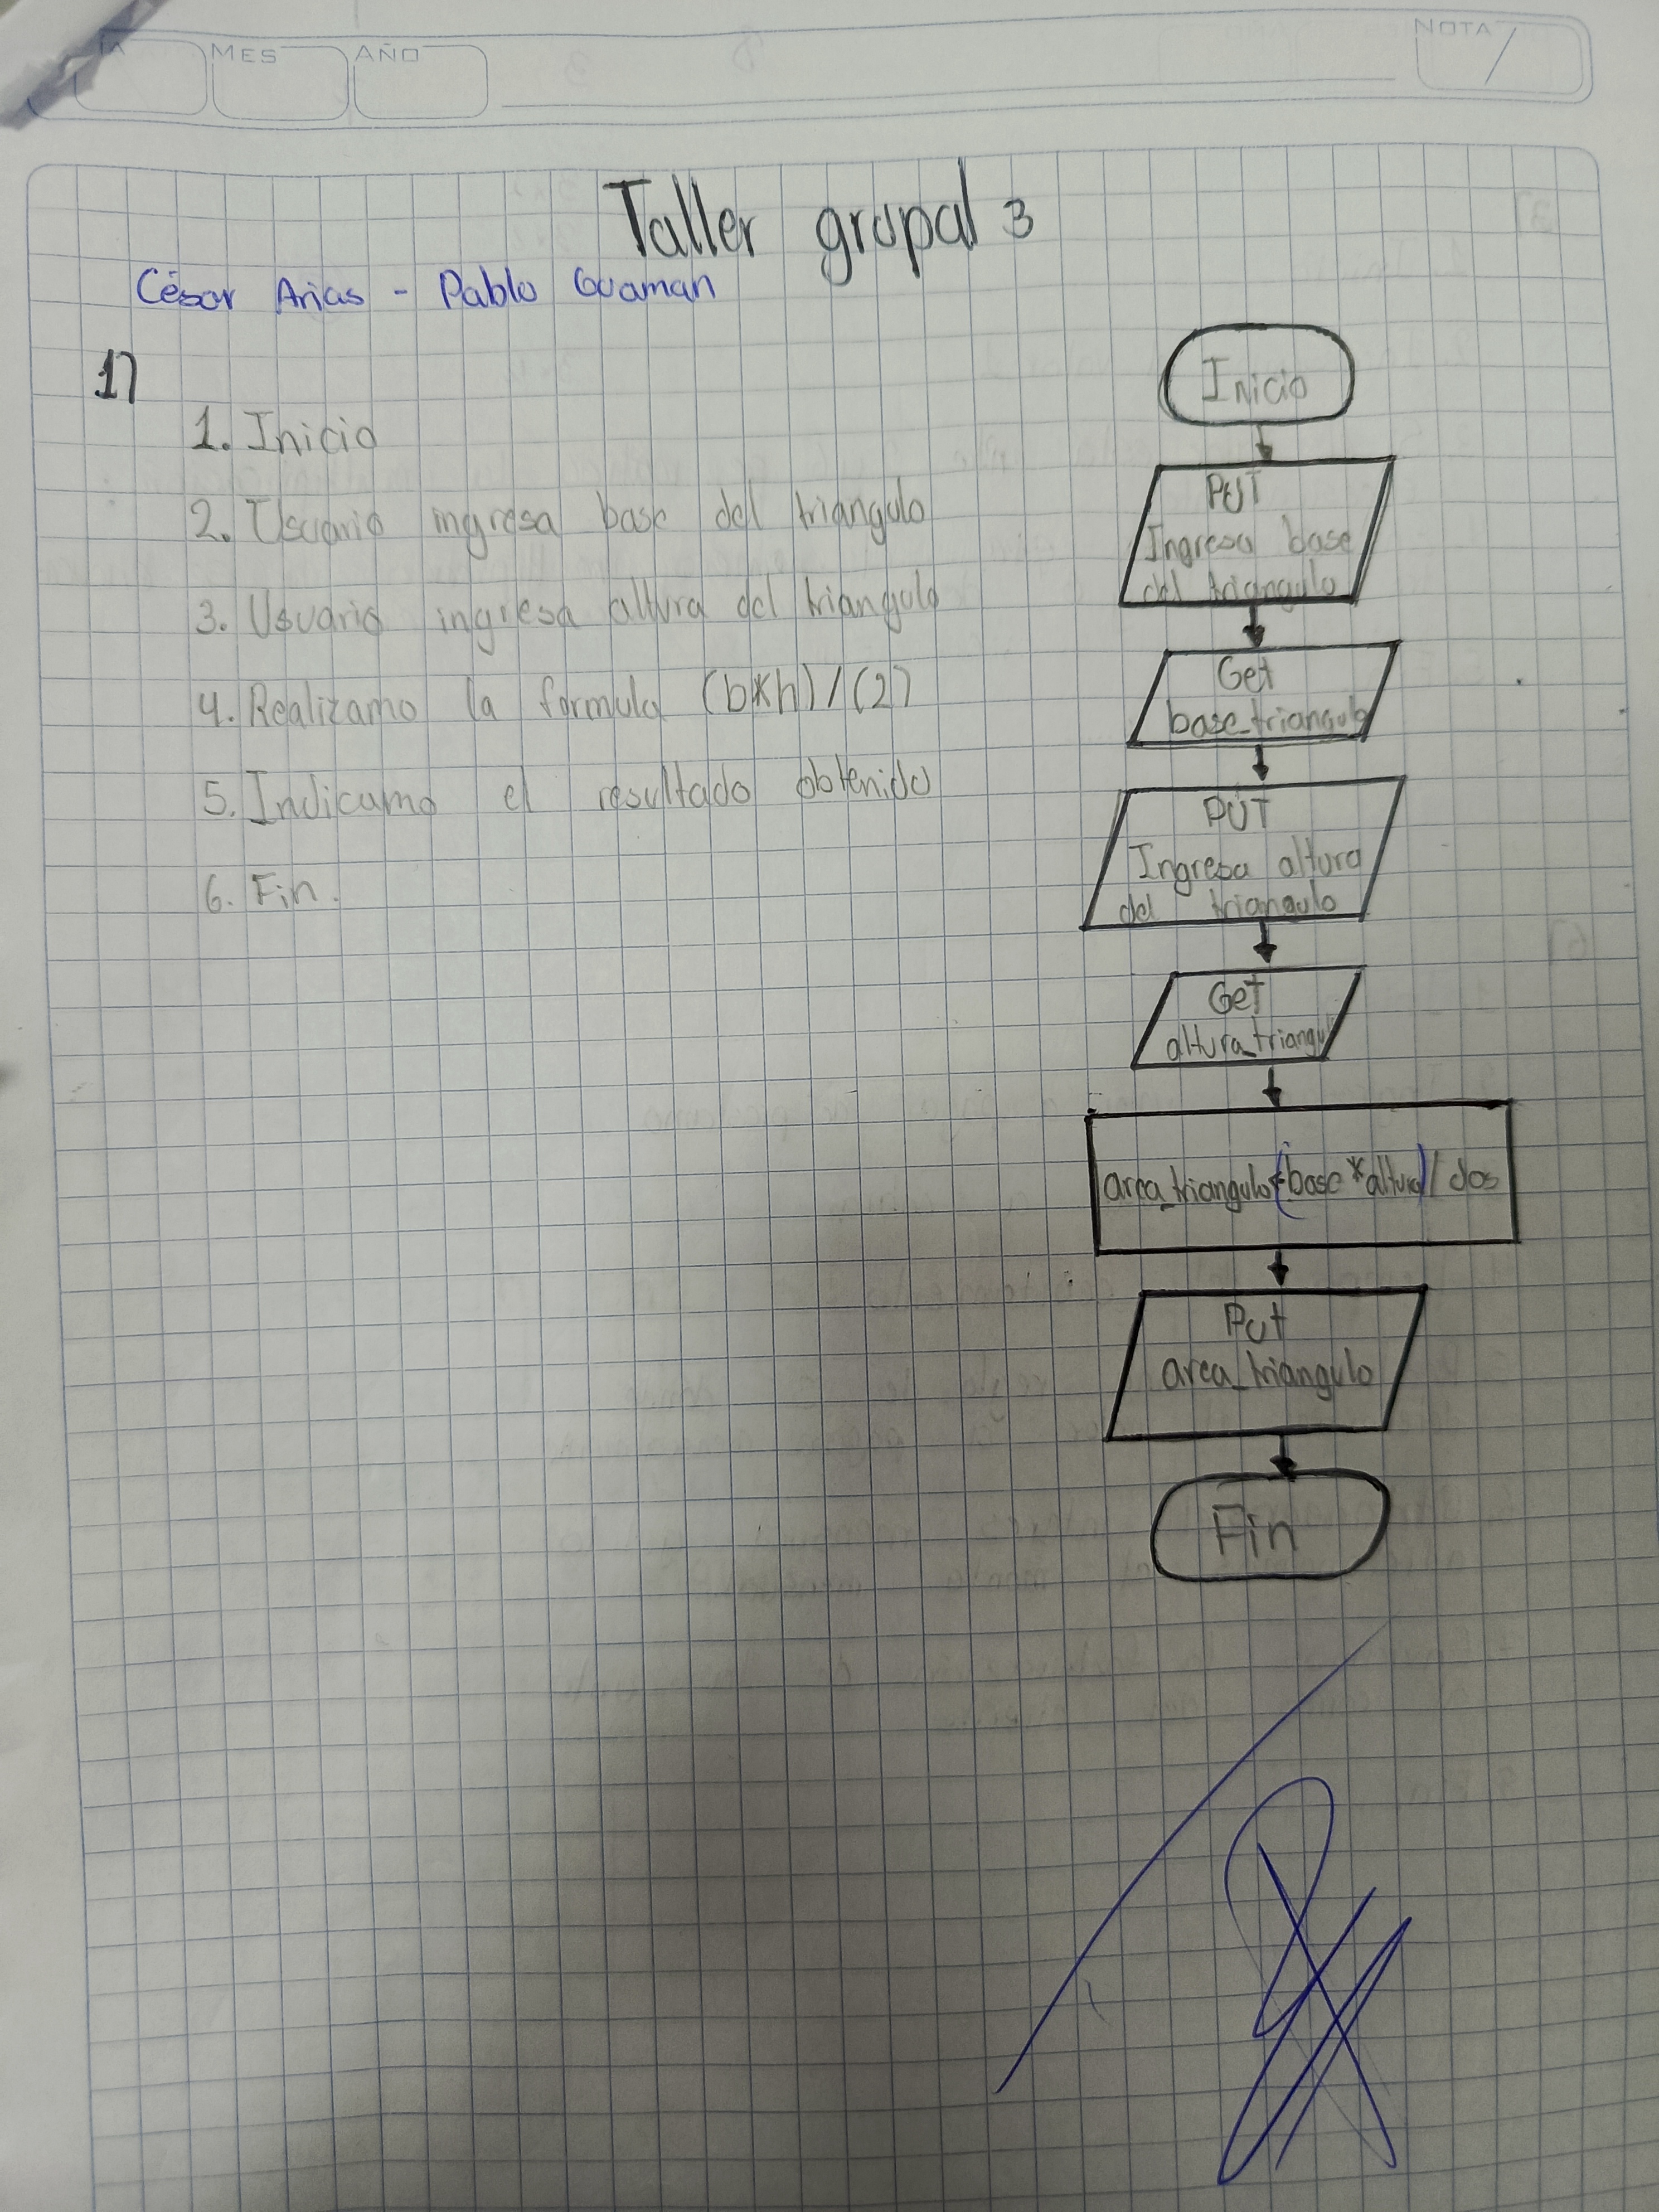 MES
AÑO
NOTA
Taller grupal 3
César Arias - Pablo Guaman
1)
1. Inicio
2. Usuario ingresa base del triangulo
3. Usuario ingresa altura del triangulo
4. Realizamo la formula (b*h)/(2)
5. Indicamo el resultado obtenido
6. Fin.
Inicio
PUT
Ingresa base
del triangulo
Get
base_triangulo
PUT
Ingresa altura
del triangulo
Get
altura_triangul
area_triangulo=(base*altura)/dos
Put
area_triangulo
Fin